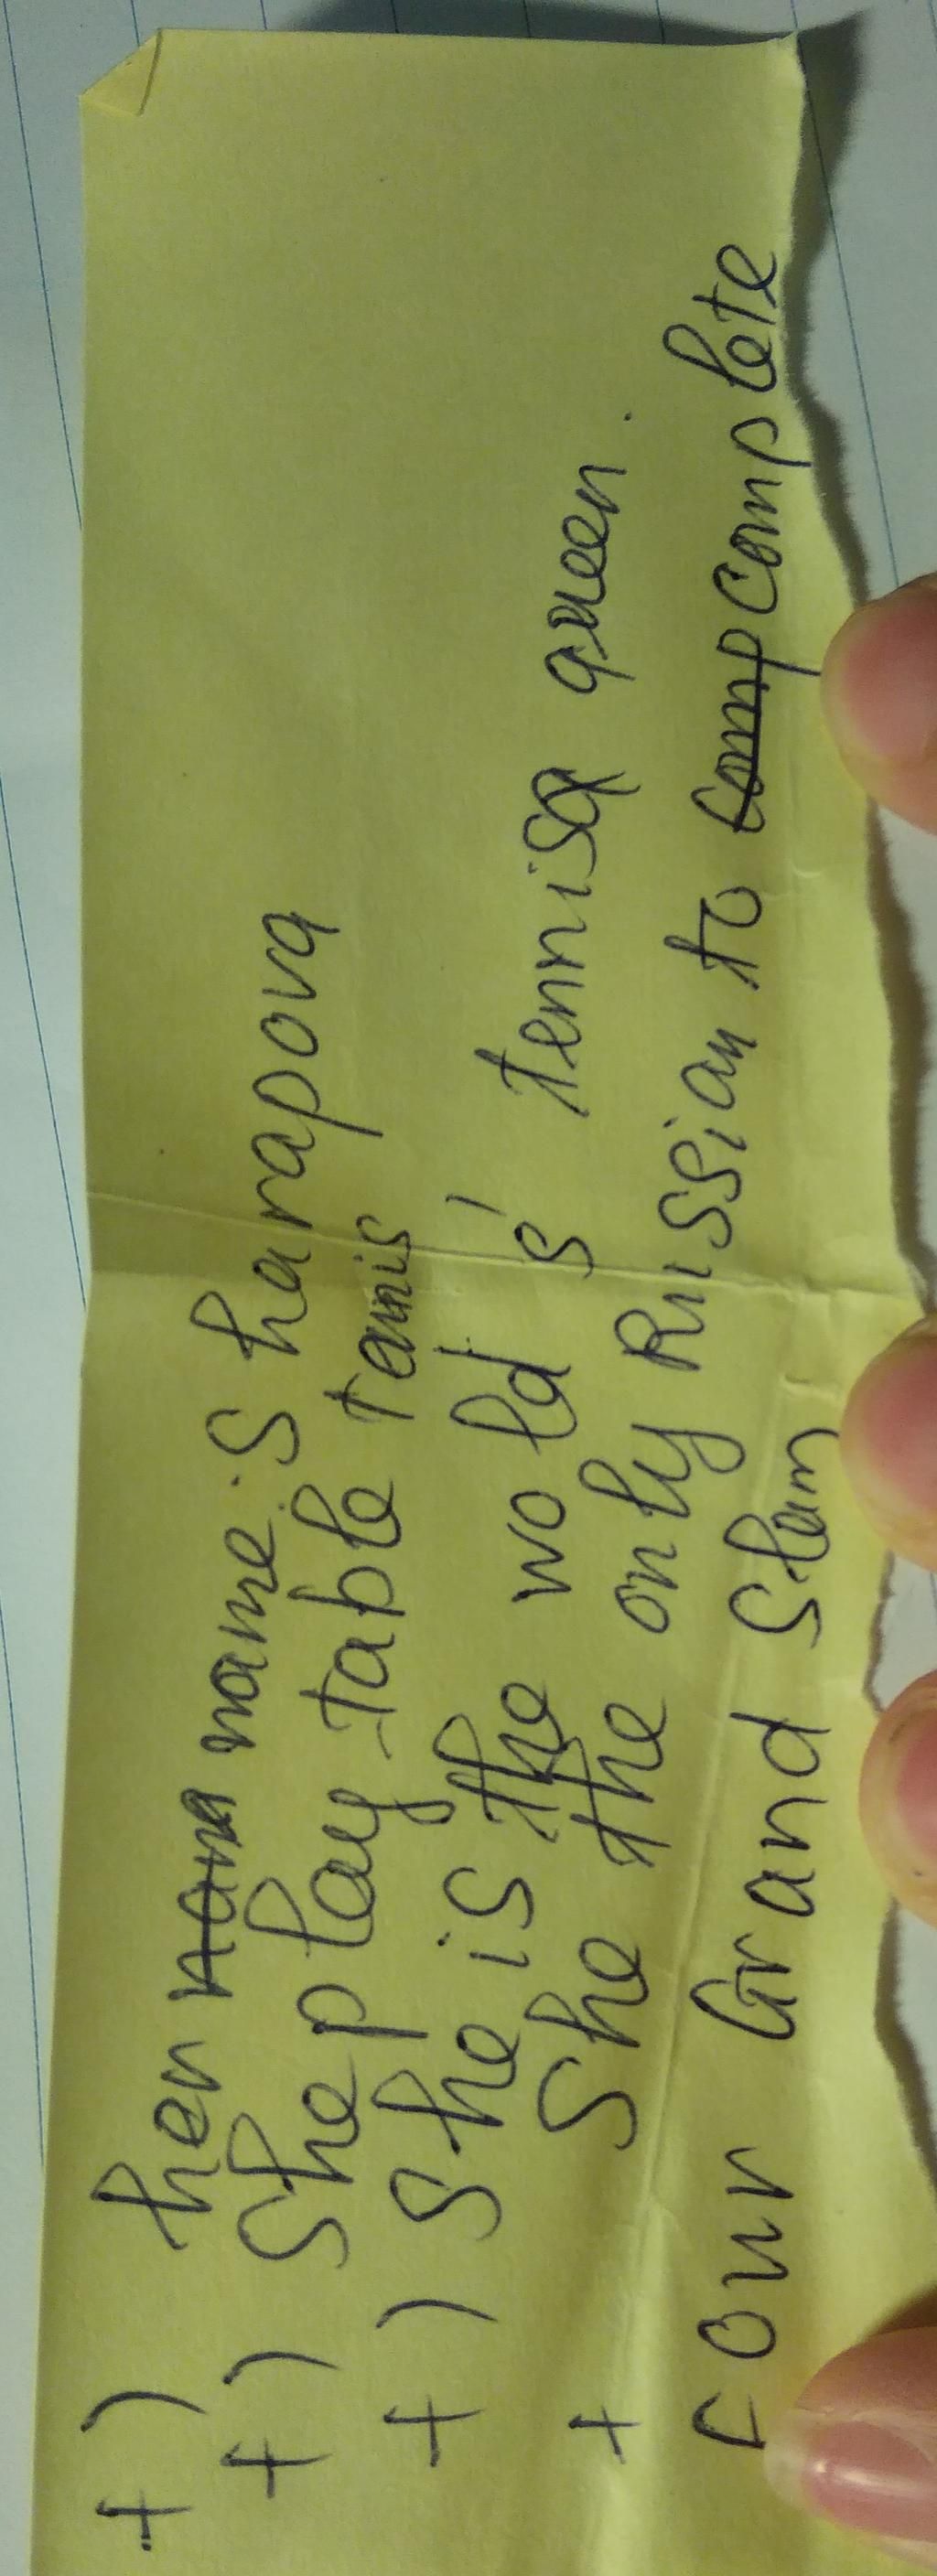 +) her name: Sharapova
+) She play table tennis
+) She is the wold s' tennisa queen.
+ She the only Russian to complete
Four Grand Slam